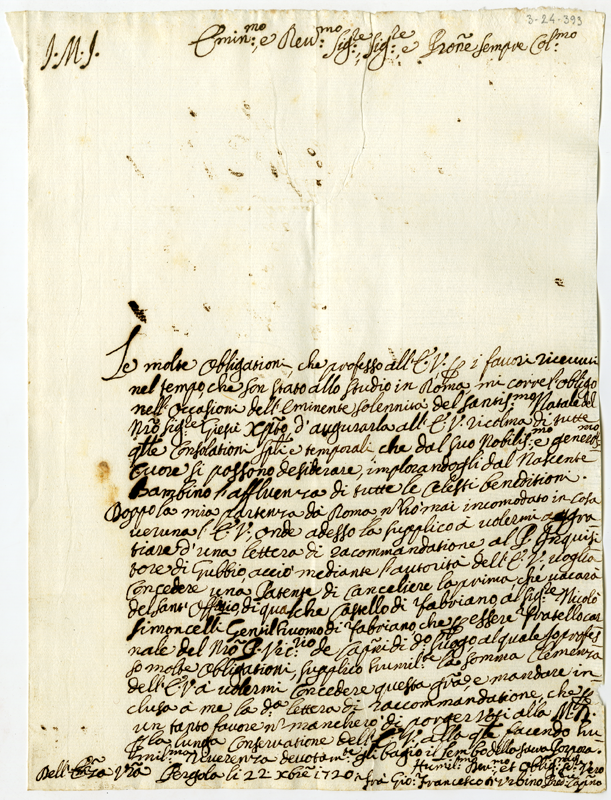 3-24-393
J. M. J.
Emin.mo, e Rev.mo Sig.re, Sig.re, e Prõne sempre Col.mo
Le molte obligationi, che professo all'E.V. p i favori ricevuti
nel tempo che son stato allo studio in Roma mi corre l'obligo
nell'Occasioni dell'Eminente solennità del santis.mo Natale del
Nrõ Sig.re Giesù Xpto d'augurarla all'E.V. ricolma di tutte
qlle Consolationi Spli e temporali, che dal suo Nobilis.mo e generos.mo
Cuore si possono desiderare, implorandogli dal Nascente
Bambino l'affluenza di tutte le Celesti benedittioni.
Doppo la mia partenza da Roma n hò mai incomodato in cosa
veruna l'E.V. onde adesso la supplico à volermi
tiare d'una lettera di raccommandatione al P. Inquisi
tore di Gubbio acciò mediante l'autorità dell'E.V. voglia
Concedere una Patente di Canceliere la prima, che vacarà
del sant'Offitio di qualche Castello di Fabriano al Sig.re Nicolò
Simoncelli Gentilhuomo di Fabriano che p essere fratello car
nale del Mio P. Vic.rio de Caprĩdi do luogo al quale so profes
so molte obligationi, supplico humil.te la somma Clemenza
dell'E.V. à volermi concedere questa gra, e mandare in
clusa à me la da lettera di raccommandatione, che p
un tanto favore n mancherò di porger voti alla
p la lunga Conservatione dell'E.V. alla qle facendo hu
mil.ma Reverenza devotam.te gli bagio il lembo della sacra Porpora.
Dell'E.za Vrã Pergola li 22 Xbre 1720
Humil.mo Dev.mo et Oblig.mo Ser. Vero
frà Gio: Francesco d'Urbino Pred. Capino